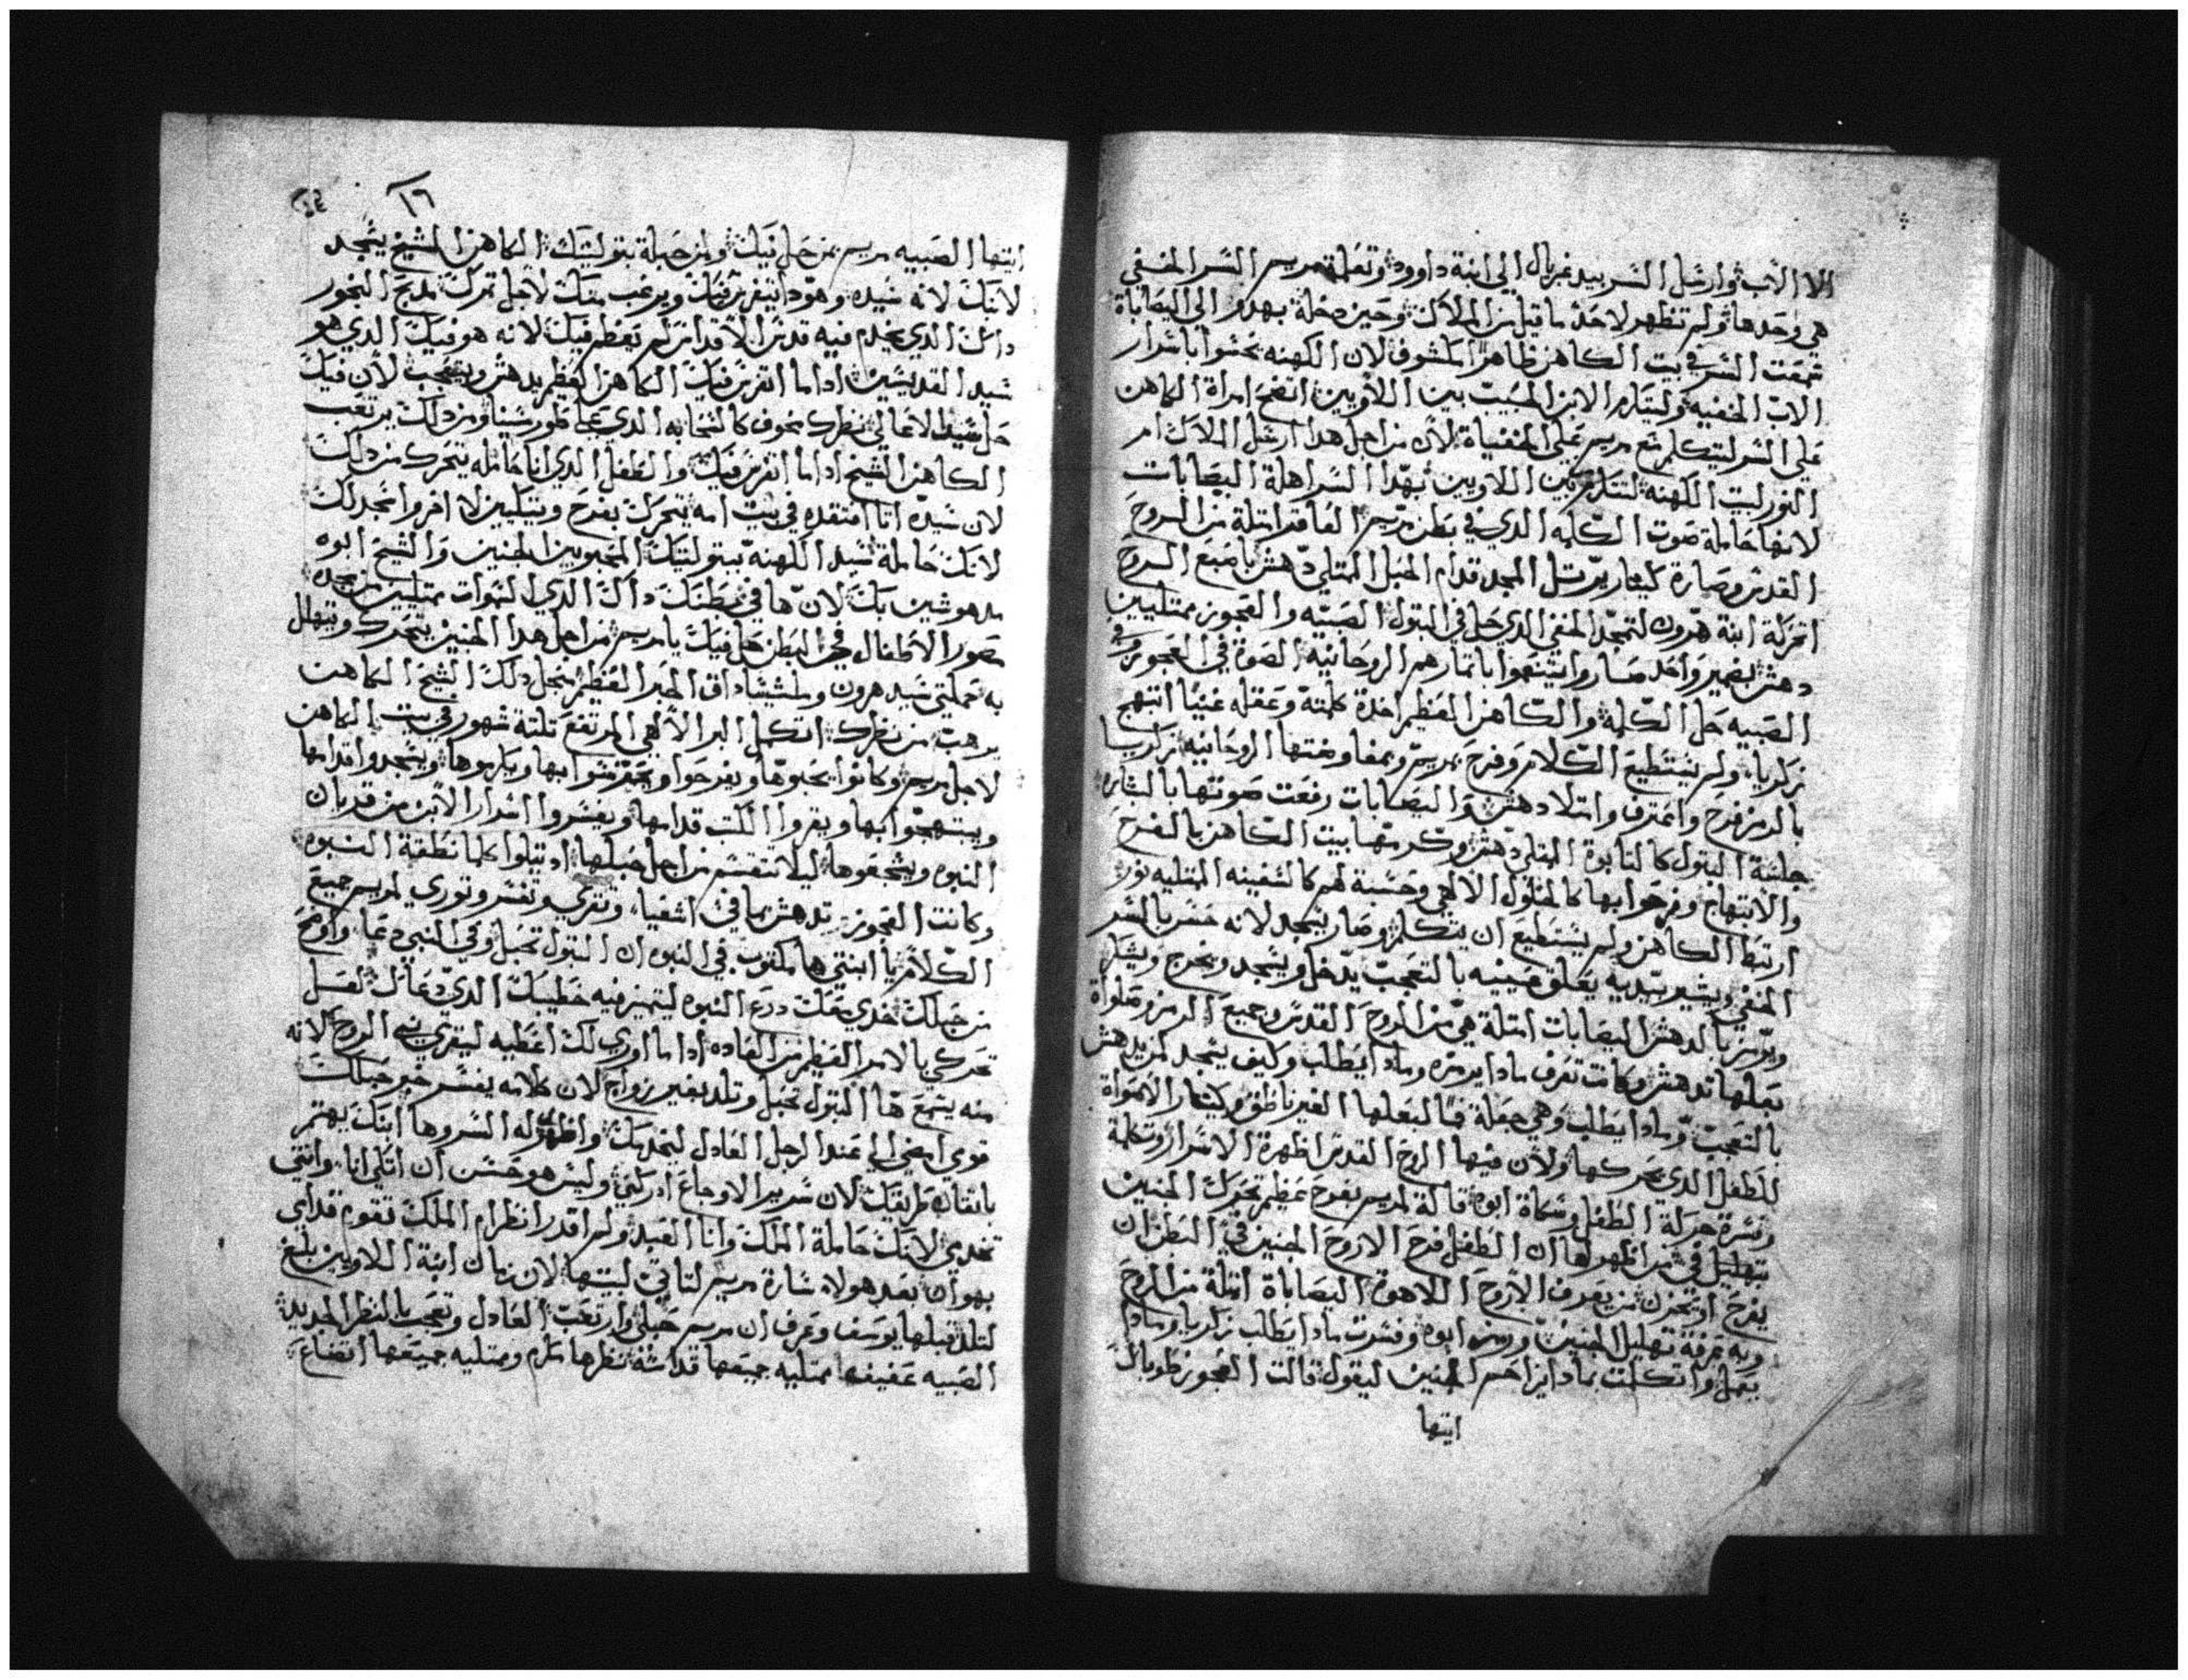 الا الاب وارسل السر بيد غبريال الي ابنة داوود وتعلمة مريم السر الخفي
هي وحدها ولم تظهر لاحد ما قيل من الملاك وحين دخلة بهدو الى اليصاباة
سمعت السر في بيت الكاهن ظاهرا مكشوف لان الكهنه تحسوا باسرار
الاب الخفيه وليتلام الابن الحبيب بين اللاويين اتضح امراة الكاهن
على السر ليتكلم مع مريم على الخفياة لان من اجل هدا ارسل الملاك ام
النور لبيت الكهنه لتتلام بين اللاويين بهدا السر اهلة اليصابات
لانها حاملة صوت الكلمه الدي في بطن مريم العاقر امتلة من الروح
القدس وصارة كيثار يرتل المجد قدام الحبل الممتلي دهش باصبع الروح
اتحركة ابنة هرون لتمجد المخفي الدي حل في البتول الصبيه والعجوز ممتليين
دهش بضمير واحد صاروا يتنعموا باتمارهم الروحانيه الصوة في العجوز وفي
الصبيه حل الكلمة والكاهن العظيم اخدة كلمتة وعقله غنيا ابتهج
زكريا ولم يستطيع الكلام وفرح بمريم وبمفاوضتها الروحانيه زكريا
بالرمز فرح واعترف وامتلا دهش واليصابات رفعت صوتها بالبشاره
جلسة البتول كالتابوة الممتلي دهش وكرمتها بيت الكاهن بالفرح
والابتهاج وفرحوا بها كالحلول الالهي وحسبة لهم كالسفينه الممتليه نور
ارتبط الكاهن ولم يستطيع ان يتكلم وصار يسجد لانه حسس بالسر
المخفي ويشير بيديه يغلق عينيه بالتعجب يدخل ويسجد ويخرج ويشكر
ويرمز بالدهش اليصابات امتلة هي من الروح القدس وجميع الرمز وصلواة
بعلها تدهش وكانت تعرف مادا يرمزه ومادا يطلب وكيف يسجد لمريم دهش
بالتعجب ومادا يطلب وهي جعلة فما لبعلها الغير ناطق وكيثار الاصواة
للطفل الدي يحركها ولان فيها الروح القدس اظهرة الاسرار وتكلمة
وفسرة حركة الطفل وسكاة ابوه قالة لمريم بفرح عظيم تحرك الجنين
بتهليل في من اظهر لها ان الطفل فرح الا روح الجنين في البطن ان
يفرح او يحزن من يعرف الا روح اللاهوة اليصاباة امتلة من الروح
وبه عرفة تهليل الجنين ورمز ابوه وفسرت مادا يطلب زكريا ومادا
يعمل واتكلمت بمادا يزاحم الجنين ليقول قالت العجوز طوباك
ايتها
١٦
ايتها الصبيه مريم بمن حل فيك ومن حبلة بتوليتك الكاهن الشيخ يسجد
لابنك لانه سيده وهودا يتفرس فيك ويرغب منك لاجل تمرك مدبح البخور
داك الدي يخدم فيه قدس الاقداس لم يعظم فيك لانه هو فيك الدي هو
سيد القديسين اداما اتفرس فيك الكاهن العظيم يدهش ويتعجب لان فيك
حل سيد الاعالي نظرك مخوف كالسحابه الدي على طور سينا ومن دلك يرتعب
الكاهن الشيخ اداما اتفرس فيك والطفل الدي انا حامله يتحرك من دلك
لان سيده انا افتقده في بيت امه يتحرك بفرح وتيكليين لا افر واسجد لك
لانك حاملة سيد الكهنه بتوليتك المحبوبين الجنين والشيخ ابوه
مدهوشين بك لان ها في بطنك داك الدي السموات ممتليين من مجده
مصور الاطفال في البطن حل فيك يا مريم من اجل هدا الجنين يتحرك ويتهلل
به حملتي سيد هرون وملشيشاداق الحبر العظيم من اجل دلك الشيخ الكاهن
يرهب من نظرك اتكمل البر الالهي المرتفع تلتة شهور في بيت الكاهن
لاجل مريم وكانوا يحبوها ويفرحوا ويتحرسوا بها ويكرموها ويسجدوا قدامها
ويبتهجوا بها ويقروا الكتب قدامها ويفسروا اسرار الابن من قديان
النبوه ويشجعوها ليلا تنقسم من اجل حبلها اد تتلوا كلما نطقة النبوه
وكانت العجوز تدهش بما في اشعيا وتقري وتفسر وتوري لمريم جميع
الكلام يا ابنتي ها مكتوب في النبوه ان البتول تحبل وفي النبي دعا واوضح
من حبلك خدي معك درج النبوه لتميز فيه خطيبك الدي دعاك لغسل
تحركي بالامر العظيم من العاده اداما اوري لك اعطيه ليقري في الروح لانه
منه يسمع ها البتول تحبل وتلد بغير زواج لان كلامه يفسر خبر حبلك
قومي امضي الي عند الرجل العادل ليخدمك واظهري له السر وها ابنك يهتم
باتقان طريقك لان سرير الاوجاع ادركني وليس هو حسن ان اتكي انا وانتي
تخدمي لانك حاملة الملك وانا العبد ولم اقدر انظر ام الملك تقوم قدامي
بهوان بعد هولاء سارة مريم لتاتي لبيتها لان زمان ابنة اللاويين بلغ
لتلد قبلها يوسف وعرف ان مريم حبلي وارتعب العادل وتعجب بالنظر الجديد
الصبيه عفيفه ممتليه جميعها قداسة نظرها مكرم وممتليه جميعها اتضاع